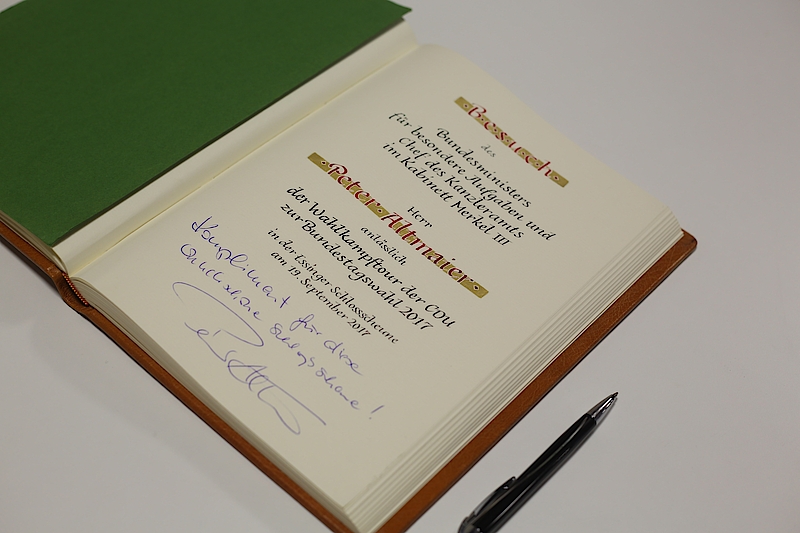 Besuch
des
Bundesministers
für besondere Aufgaben und
Chef des Kanzleramts
im Kabinett Merkel III
Herr
Peter Altmaier
anlässlich
der Wahlkampftour der CDU
zur Bundestagswahl 2017
in der Essinger Schlossscheune
am 19. September 2017
Kompliment für diese
Schlossscheune!